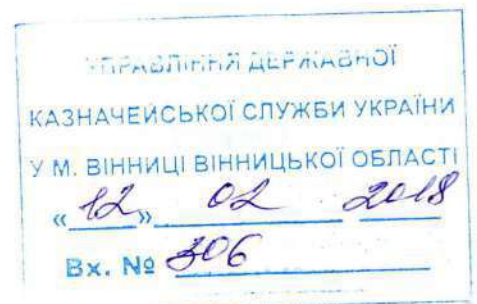 УПРАВЛІННЯ ДЕРЖАВНОЇ
КАЗНАЧЕЙСЬКОЇ СЛУЖБИ УКРАЇНИ
У М. ВІННИЦІ ВІННИЦЬКОЇ ОБЛАСТІ
«12» 02 2018
Вх. № 306